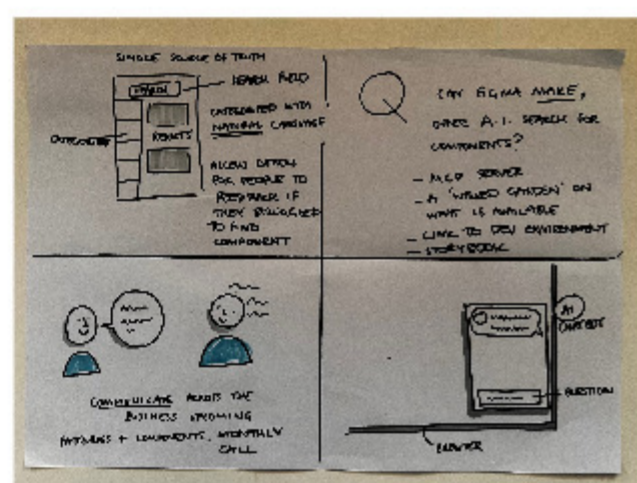 SINGLE SOURCE OF TRUTH
SEARCH
SEARCH FIELD
CATEGORIES
RESULTS
CATEGORISED WITH
NATURAL LANGUAGE
ALLOW OPTION
FOR PEOPLE TO
FEEDBACK IF
THEY STRUGGLED
TO FIND
COMPONENT
CAN FIGMA MAKE,
DRIVE A.I. SEARCH FOR
COMPONENTS?
- MCP SERVER
- A 'WALLED GARDEN' ON
WHAT IS AVAILABLE
- LINK TO DEV ENVIRONMENT
- STORYBOOK
COMMUNICATE ACROSS THE
BUSINESS UPCOMING
PATTERNS + COMPONENTS. MONTHLY
CALL
AI
CHATBOT
QUESTION
BROWSER